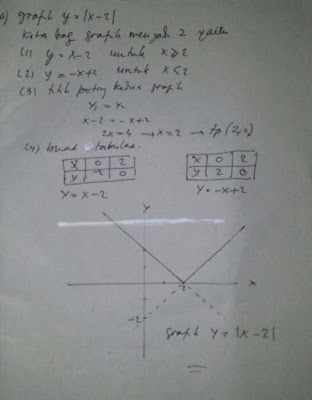 graph y = |x-2|
kita bag graph menjadi 2 yaitu
(1) y = x-2 untuk x ≥ 2
(2) y = -x+2 untuk x ≤ 2
(3) titik potong kedua graph
y₁ = y₂
x-2 = -x+2
2x = 4 → x = 2 → tp (2,0)
(4) buat
x 0 2
y -2 0
y = x-2
x 0 2
y 2 0
y = -x+2
y
x
2
-2
graph y = |x-2|